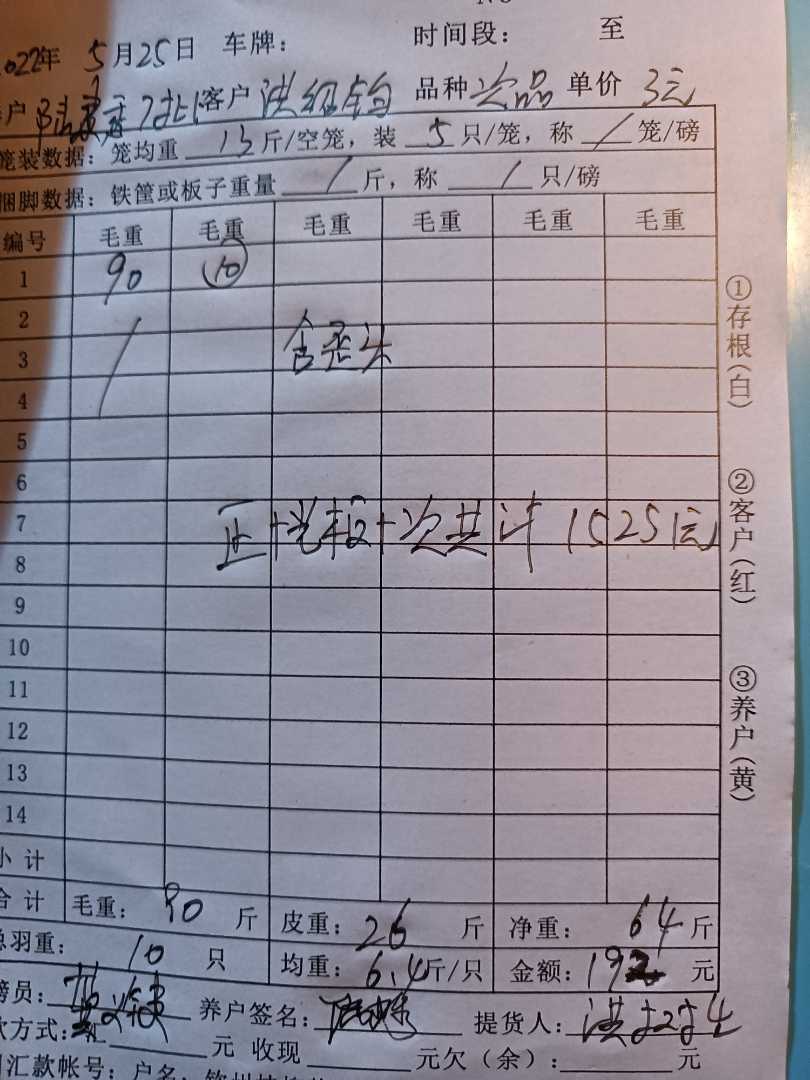 2022年 5月25日 车牌： 时间段： 至
户 客户 洪绍钧 品种 次品 单价 3元
笼装数据：笼均重 13 斤/空笼，装 5 只/笼，称 / 笼/磅
捆脚数据：铁筐或板子重量 / 斤，称 / 只/磅
编号 毛重 毛重 毛重 毛重 毛重 毛重
1 90 10
2
3 / 含歪头
4
5
6
7 正+光板+次共计1525元
8
9
10
11
12
13
14
小计
合计 毛重： 90 斤 皮重： 26 斤 净重： 64 斤
总羽重： 10 只 均重： 6.4 斤/只 金额： 192 元
磅员： 养户签名： 提货人： 洪
款方式： 元 收现 元欠（余）： 元
汇款帐号：户名：钦州
①存根（白）
②客户（红）
③养户（黄）